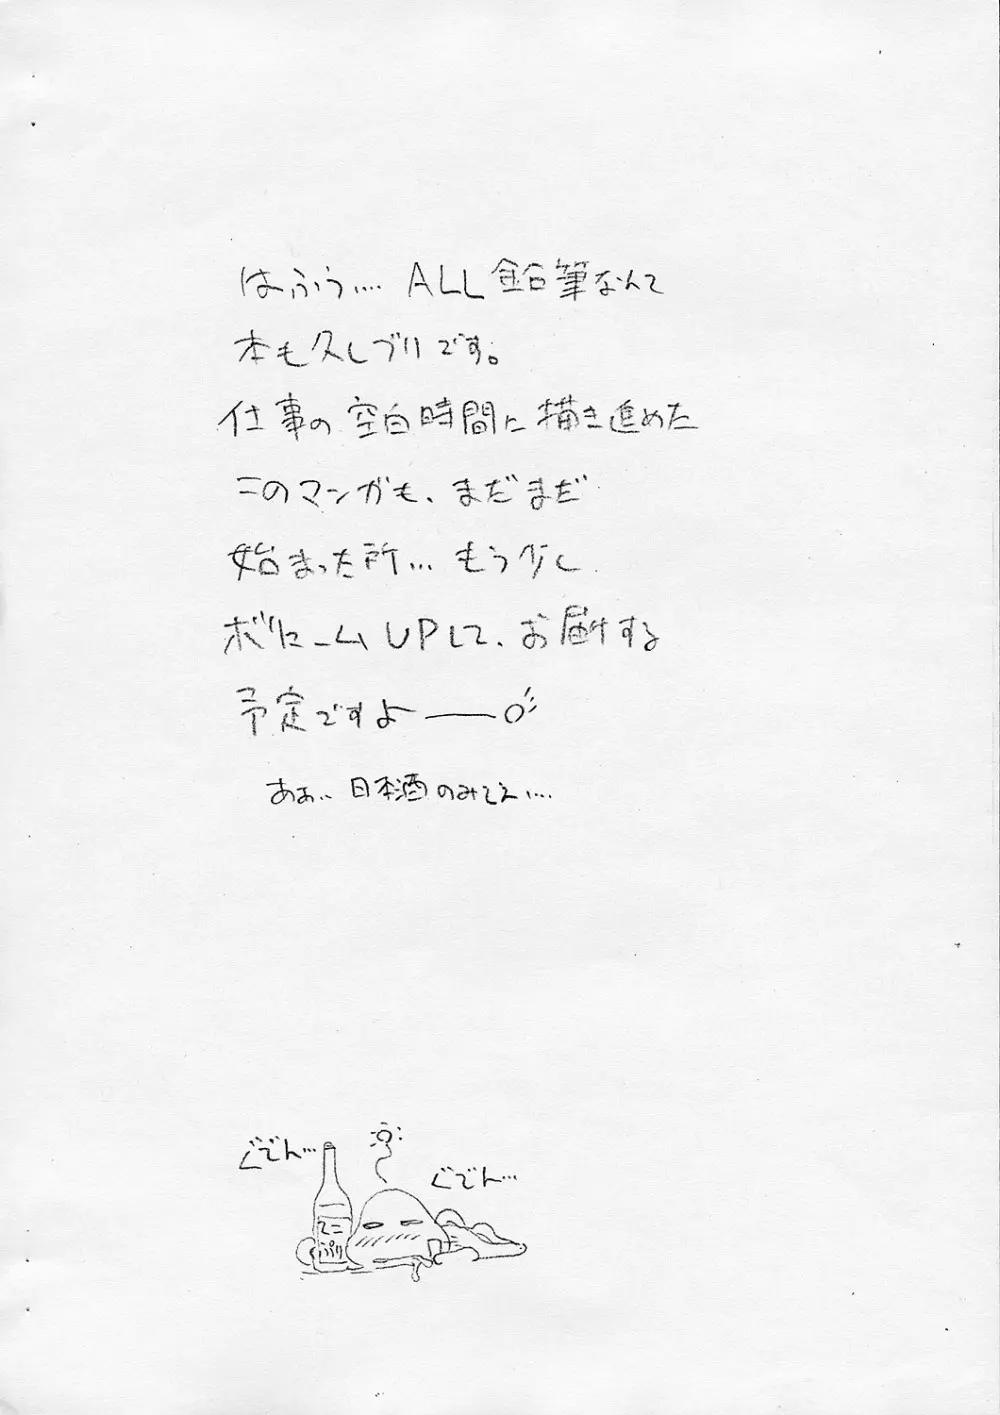 はふぅ… ALL鉛筆なんて
本も久しブリです。
仕事の空白時間に描き進めた
このマンガも、まだまだ
始まった所… もう少し
ボリュームUPして、お届けする
予定ですよ――○
ああ… 日本酒のみてえ….
ぐでん…
ぐでん…